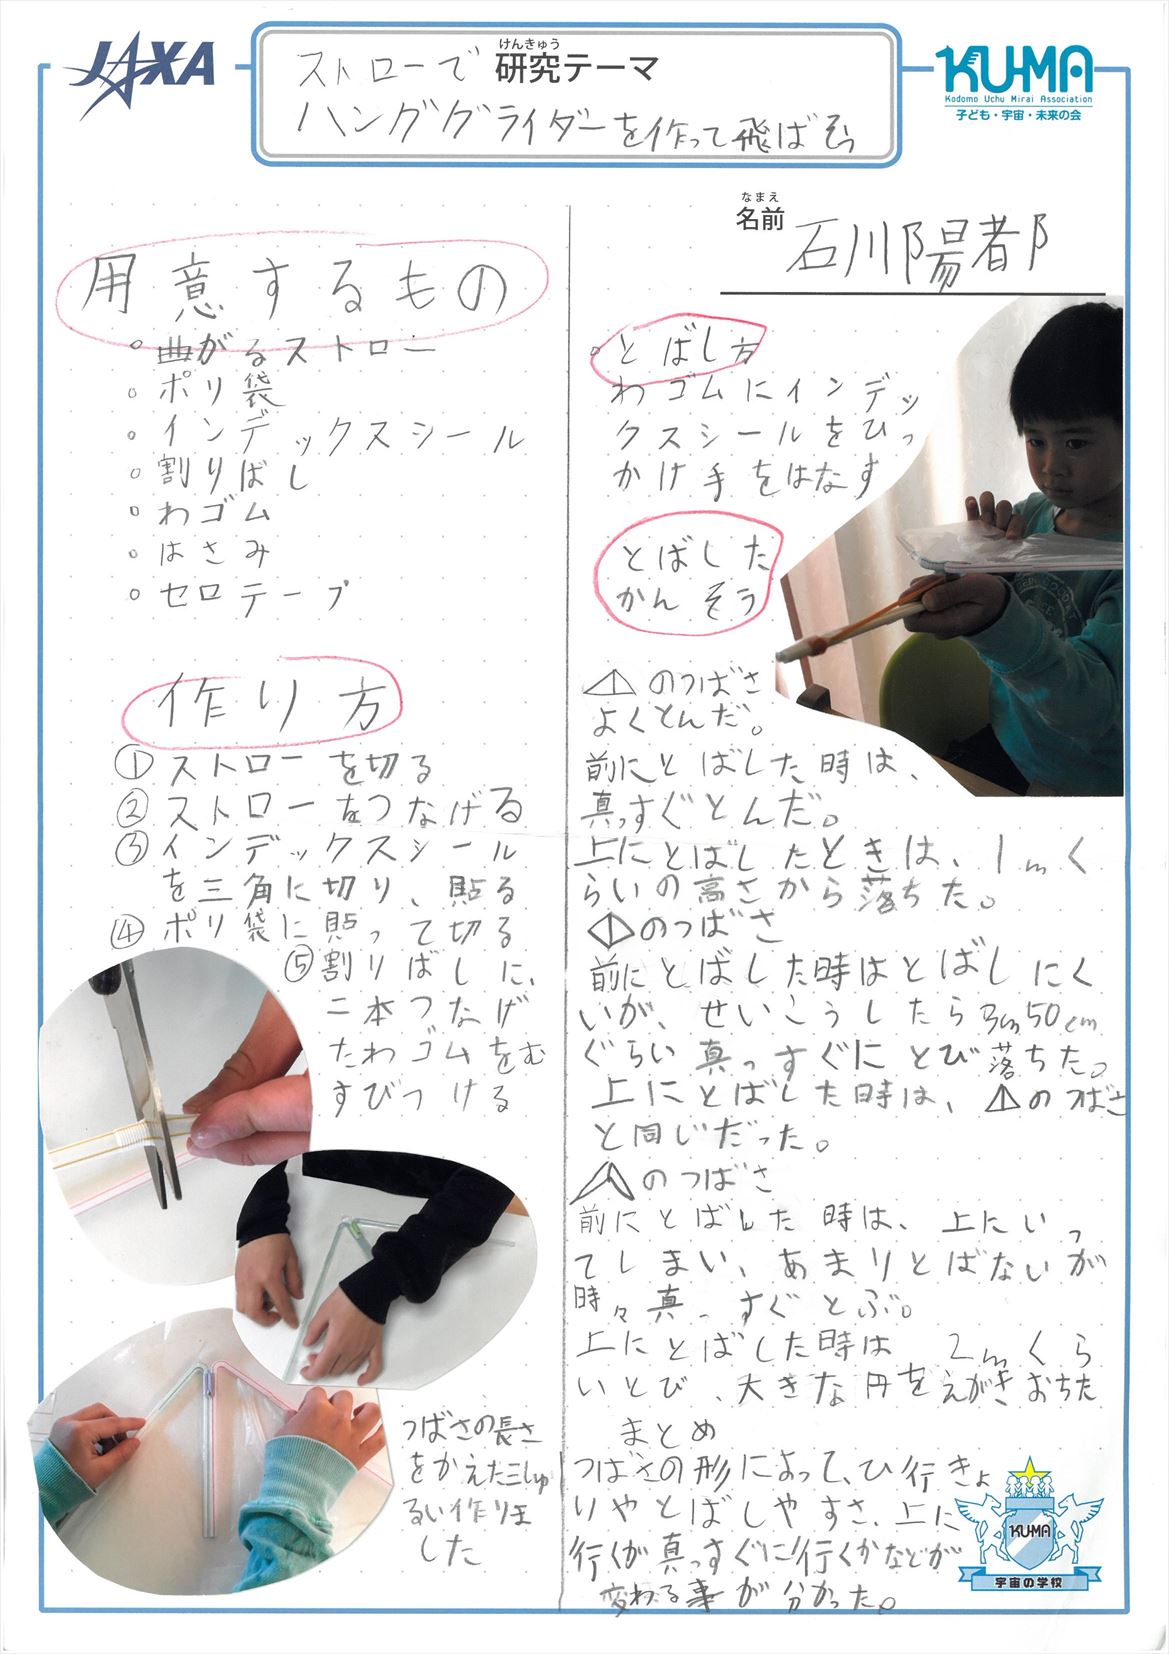 JAXA
ストローで
けんきゅう
研究テーマ
ハンググライダーを作って飛ばそう
KU-MA
Kodomo Uchu Mirai Association
子ども・宇宙・未来の会
なまえ
名前
石川陽都
用意するもの
。曲がるストロー
。ポリ袋
。インデックスシール
。割りばし
。わゴム
。はさみ
。セロテープ
作り方
①ストローを切る
②ストローをつなげる
③インデックスシール
を三角に切り、貼る
④ポリ袋に貼って切る
⑤割りばしに、
二本つなげ
たわゴムをむ
すびつける
つばさの長さ
をかえた三しゅ
るい作りま
した
。とばし方
わゴムにインデッ
クスシールをひっ
かけ手をはなす
とばした
かんそう
のつばさ
よくとんだ。
前にとばした時は、
真っすぐとんだ。
上にとばしたときは、1mく
らいの高さから落ちた。
のつばさ
前にとばした時はとばしにく
いが、せいこうしたら3m50cm
ぐらい真っすぐにとび落ちた。
上にとばした時は、のつばさ
と同じだった。
のつばさ
前にとばした時は、上にいっ
てしまい、あまりとばないが
時々真っすぐとぶ。
上にとばした時は 2mくら
いとび、大きな円をえがきおちた
まとめ
つばさの形によって、ひ行きょ
りやとばしやすさ、上に
行くか真っすぐに行くかなどが
変わる事が分かった。
KUMA
宇宙の学校